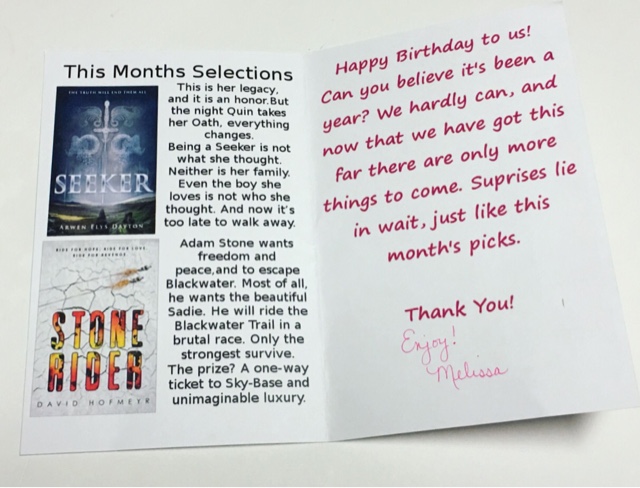 This Months Selections
THE TRUTH WILL END THEM ALL
SEEKER
ARWEN ELYS DAYTON
This is her legacy,
and it is an honor.But
the night Quin takes
her Oath, everything
changes.
Being a Seeker is not
what she thought.
Neither is her family.
Even the boy she
loves is not who she
thought. And now it's
too late to walk away.
RIDE FOR HOPE. RIDE FOR LOVE.
RIDE FOR REVENGE
STONE
RIDER
DAVID HOFMEYR
Adam Stone wants
freedom and
peace,and to escape
Blackwater. Most of all,
he wants the beautiful
Sadie. He will ride the
Blackwater Trail in a
brutal race. Only the
strongest survive.
The prize? A one-way
ticket to Sky-Base and
unimaginable luxury.
Happy Birthday to us!
Can you believe it's been a
year? We hardly can, and
now that we have got this
far there are only more
things to come. Suprises lie
in wait, just like this
month's picks.
Thank You!
Enjoy!
Melissa